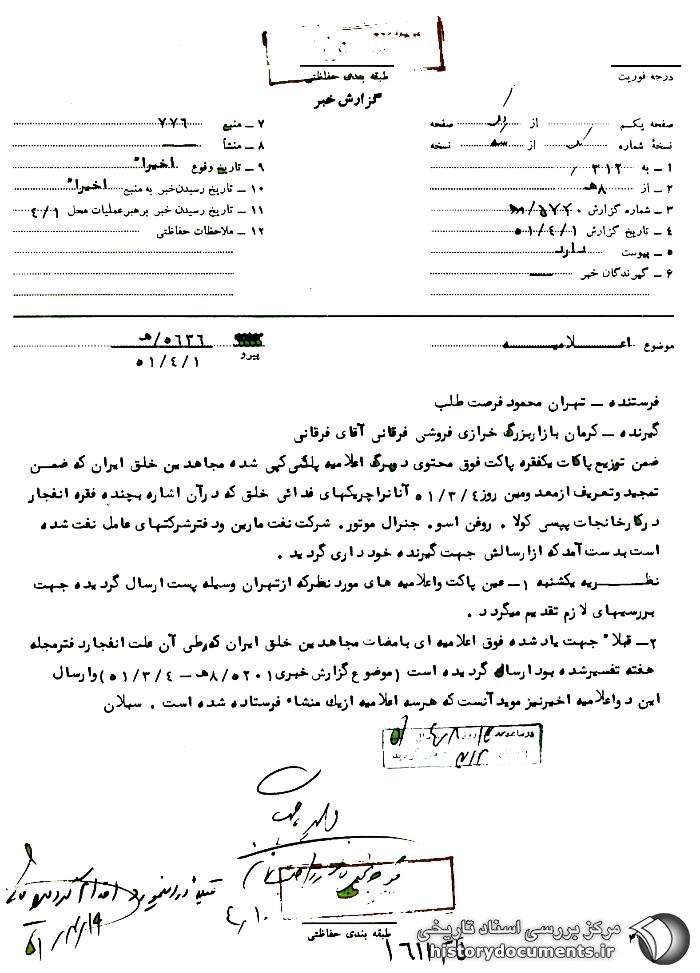 طبقه بندی حفاظتی
درجه فوریت
گزارش خبر
صفحه یکم از صفحه
نسخهٔ شماره از نسخه
۱ ـ به ۳۱۲
۲ ـ از ۸هـ
۳ ـ شماره گزارش
۴ ـ تاریخ گزارش ۵۱/۴/۱
۵ ـ پیوست دارد
۶ ـ گیرندگان خبر
۷ ـ منبع ۷۷۶
۸ ـ منشأ
۹ ـ تاریخ وقوع اخیراً
۱۰ ـ تاریخ رسیدن خبر به منبع اخیراً
۱۱ ـ تاریخ رسیدن خبر برهبر عملیات محل ۴/۱
۱۲ ـ ملاحظات حفاظتی
موضوع اعلامیه
پیرو ۵۶۳۶/هـ
۵۱/۴/۱
فرستنده ــ تهران محمود فرصت طلب
گیرنده ــ کرمان بازاربزرگ خرازی فروشی فرقانی آقای فرقانی
ضمن توزیع پاکات یکفقره پاکت فوق محتوی دوبرگ اعلامیه پلی کپی شده مجاهدین خلق ایران که ضمن
تمجید وتعریف ازمعدومین روز ۵۱/۳/۴ آنانراچریکهای فدائی خلق که درآن اشاره بچند فقره انفجار
درکارخانجات پپسی کولا . روغن اسو . جنرال موتور . شرکت نفت مارین ودفترشرکتهای عامل نفت شده
است بدست آمدکه ازارسالش جهت گیرنده خودداری گردید .
نظــریه یکشنبه ۱ــ عین پاکت واعلامیه های موردنظرکه ازتهران وسیله پست ارسال گردیده جهت
بررسیهای لازم تقدیم میگردد .
۲ــ قبلاً جهت یادشده فوق اعلامیه ای بامضات مجاهدین خلق ایران که طی آن علت انفجاردفترمجله
هفته تفسیرشده بودارسال گردیده است (موضوع گزارش خبری ۵۲۰۱/۸هـ ــ ۵۱/۳/۴) وارسال
این دواعلامیه اخیرنیز موید آنست که هرسه اعلامیه ازیک منشاء فرستاده شده است . سبلان
طبقه بندی حفاظتی
مرکز بررسی اسناد تاریخی
historydocuments.ir